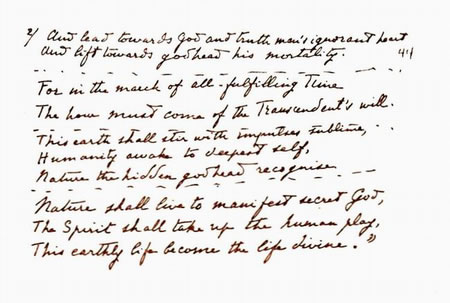 2/ And lead towards God and truth man's ignorant heart
And lift towards godhead his mortality. 44
For in the march of all-fulfilling Time
The hour must come of the Transcendent's will.
This earth shall stir with impulses sublime,
Humanity awake to deepest self,
Nature the hidden godhead recognise
Nature shall live to manifest secret God,
The Spirit shall take up the human play,
This earthly life become the life divine."